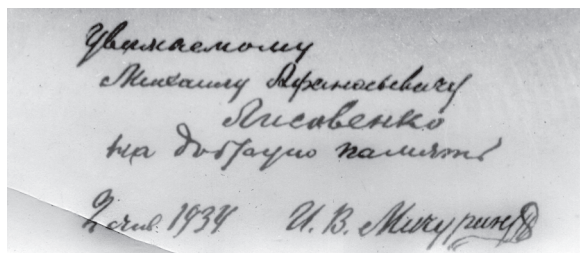 Уважаемому
Михаилу Афанасьевичу
Лисовенко
на добрую память
2 янв. 1934 И. В. Мичуринъ